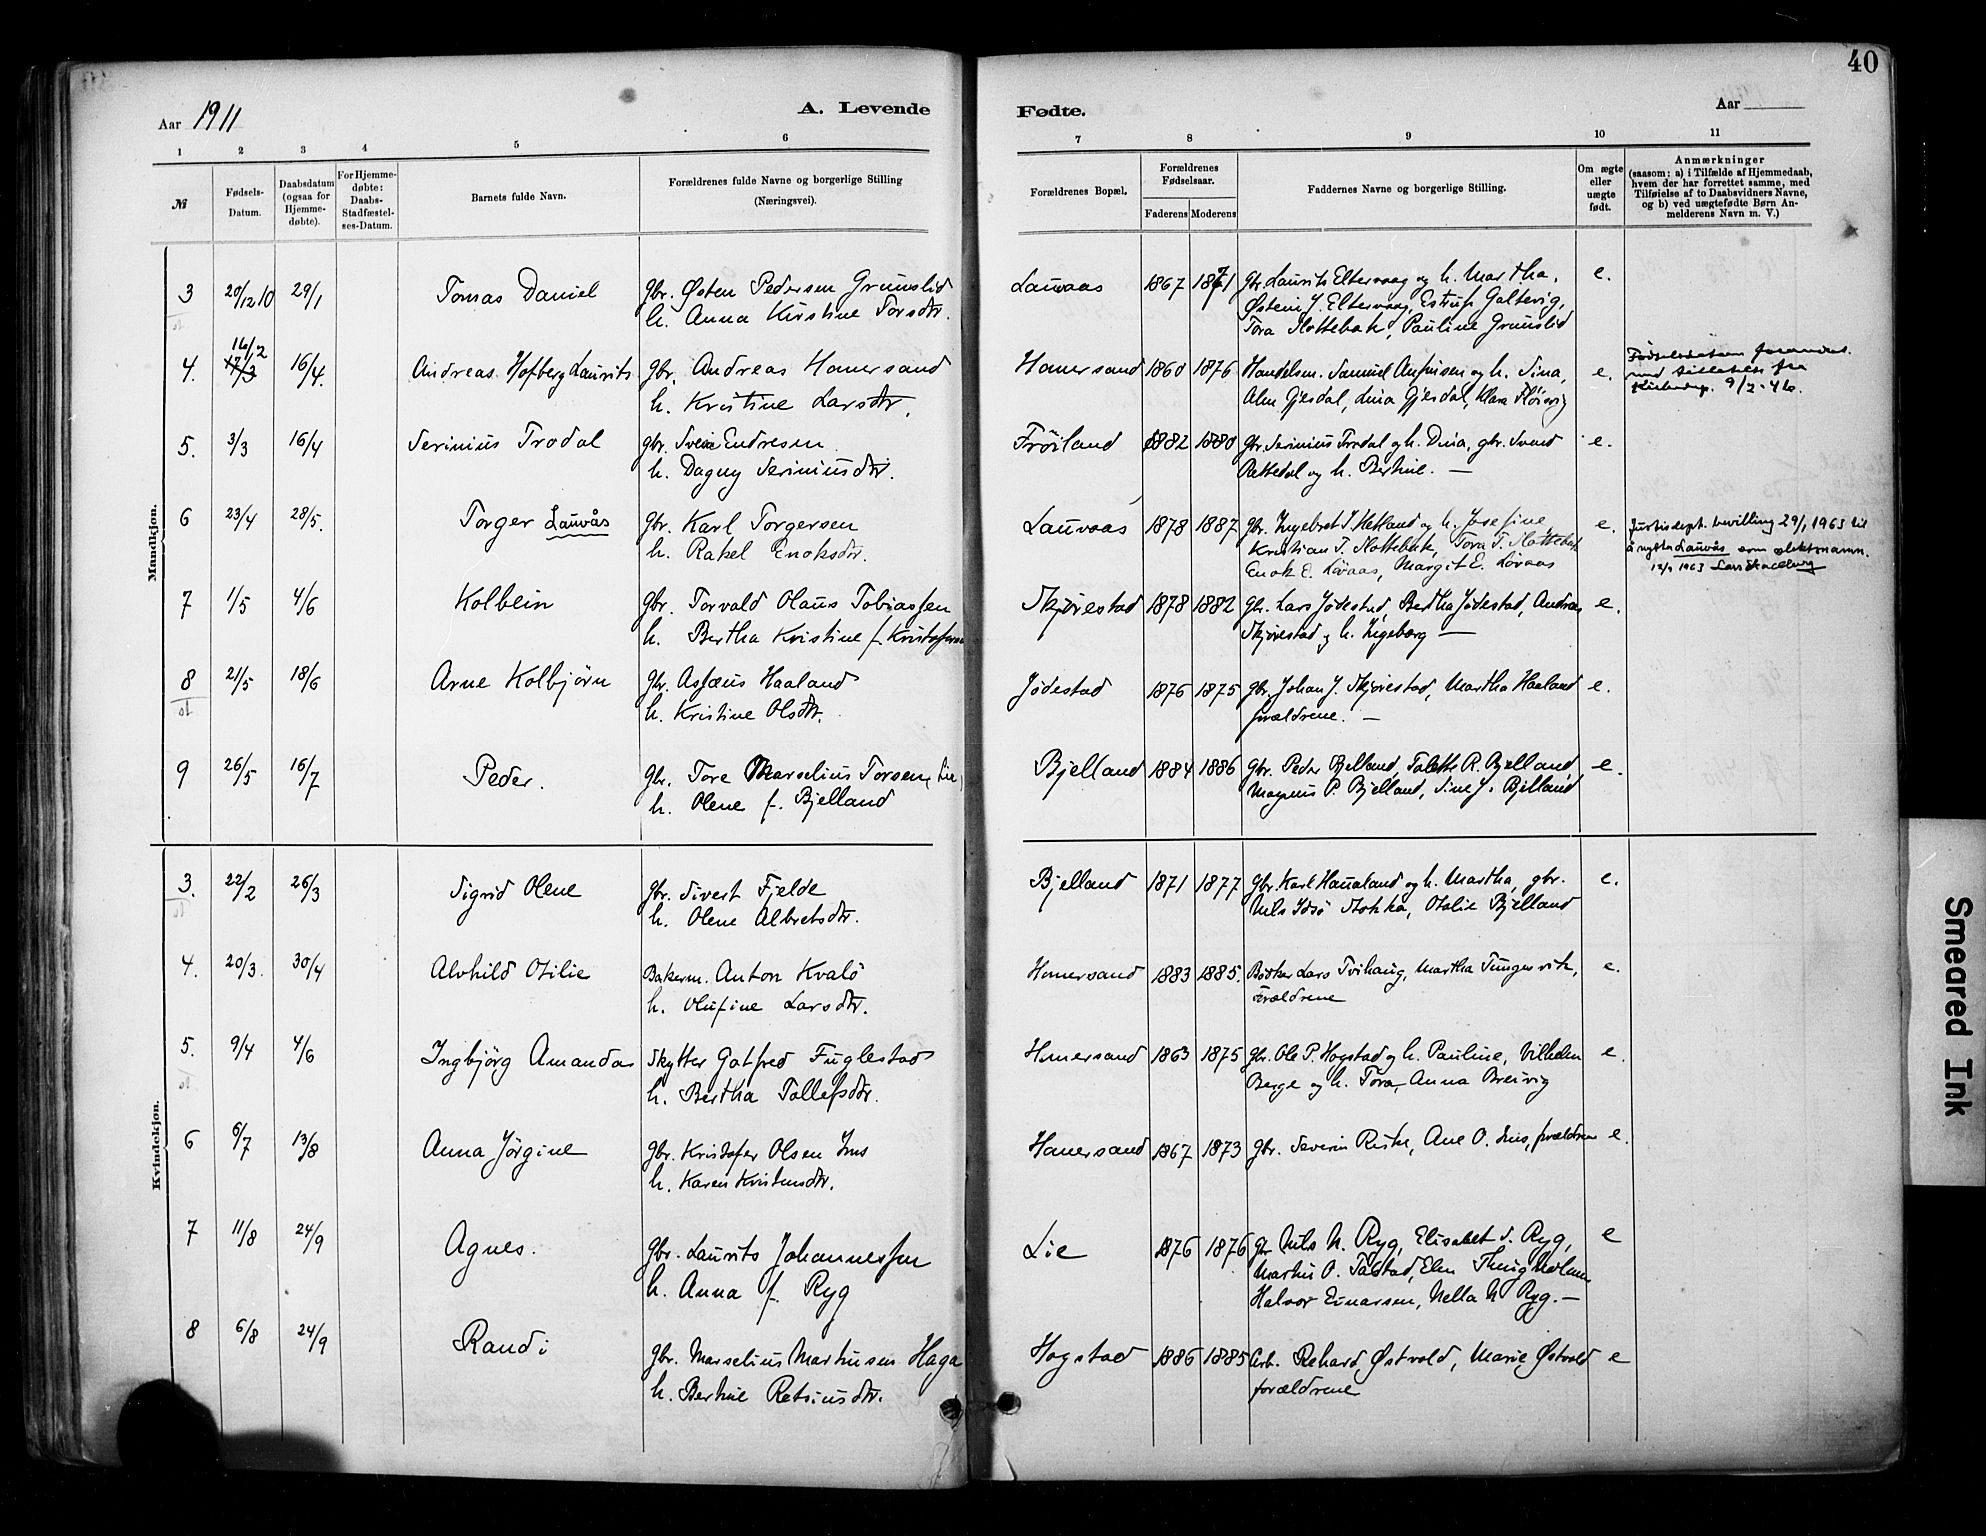 40
Aar 1911
A. Levende Fødte.
Aar
1 2 3 4 5 6 7 8 9 10 11
№
Fødsels-Datum.
Daabsdatum (ogsaa for Hjemmedøbte).
For Hjemmedøbte: Daabs-Stadfæstelses-Datum.
Barnets fulde Navn.
Forældrenes fulde Navne og borgerlige Stilling (Næringsvei).
Forældrenes Bopæl.
Forældrenes Fødselsaar.
Faderens Moderens
Faddernes Navne og borgerlige Stilling.
Om ægte eller uægte født.
Anmærkninger
(saasom: a) i Tilfælde af Hjemmedaab, hvem der har forrettet samme, med Tilføielse af to Daabsvidners Navne, og b) ved uægtefødte Børn Anmelderens Navn m. V.)
Mandkjøn.
3 20/12 10 29/1 Tomas Daniel Gbr. Østen Pedersen Grunslid Lauvaas 1867 1871 Gbr. Laurits Eltervaag og h. Martha, e.
h. Anna Kirstine Torsdtr. Østein J. Eltervaag, Estrup Galtevig,
Tora Slottebak, Pauline Grunslid
4. 16/2 17/3 16/4. Andreas Hofberg Laurits Gbr. Andreas Hanersand Hanersand 1860 1876 Handelsm. Samuel og h. Sina, e. Fødselsdatoen forandret
h. Kristine Larsdtr. Alm Gjesdal, Lina Gjesdal, Klara med tilladelse fra
Kirkedep. 9/2-46.
5. 3/3 16/4 Serinius Trodal gbr. Svein Endresen Frøiland 1882 1880 Gbr. Serinius Trodal og h. Dina, gbr. Svend e.
h. Dagny Seriniusdtr. Rettedal og h. Berthine. —
6 23/4 28/5. Torger Lauvås Gbr. Karl Torgersen Lauvaas 1878 1887 Gbr. Ingebret T. Hetland og h. Josefine, e. Justisdept. bevilling 29/1 1963 til
h. Rakel Enoksdtr. Kristian T. Slottebak, Tora T. Slottebak å nytta Lauvås som slektsnamn.
Enok E. Løvaas, Margit E. Løvaas 12/9 1963 Lars Skadberg
7 1/5 4/6 Kolbein Gbr. Torvald Olaus Tobiassen Skjørestad 1878 1882 Gbr. Lars Jødestad, Bertha Jødestad, Andreas e.
h. Bertha Kristine f. Kristofersen Skjørestad og h. Ingeborg —
8 21/5 18/6 Arne Kolbjørn Gbr. Asseus Haaland Jødestad 1876 1875 gbr. Johan J. Skjørestad, Martha Haaland e.
h. Kristine Olsdtr. forældrene. —
9 26/5 16/7 Peder. Gbr. Tore Marselius Torsen Lie, Bjelland 1884 1886 Gbr. Peder Bjelland, Tolette R. Bjelland, e.
h. Olene f. Bjelland Magnus P. Bjelland, Sine J. Bjelland
Kvindekjøn.
3. 22/2 26/3 Sigrid Olene Gbr. Sivert Fjelde Bjelland 1871 1877 Gbr. Karl Haualand og h. Martha, gbr. e.
h. Olene Albretsdtr. Nils Idsø Stokka, Otalie Bjelland
4. 20/3. 30/4 Alvhild Otilie Bakerm. Anton Kvalø Hanersand 1883 1885. Bødker Lars Tvihaug, Martha Tungesvik, e.
h. Olufine Larsdtr. Forældrene
5. 9/4 4/6 Ingbjörg Amanda Skytter Gotfred Fuglestad Hanersand 1863 1875 Gbr. Ole P. Hogstad og h. Pauline, Vilhelm e.
h. Bertha Tollefsdtr. Berge og h. Tora, Anna Breivig
6 6/7 13/8 Anna Jörgine Gbr. Kristofer Olsen Ims Hanersand 1867 1873 Gbr. Severin Riske, Ane O. Ims, forældrene e.
h. Karen Kristensdtr.
7 11/8 24/9 Agnes. Gbr. Laurits Johannessen Lie 1876 1876 Gbr Nils N. Ryg, Elisabet S. Ryg, e
h. Anna f. Ryg Martin O. Talstad, Elen
Halvor Einarsen, Nella N Ryg. —
8 6/8 24/9 Randi Gbr. Marselius Martinsen Haga Hogstad 1886 1885 Arb. Rehard Østvold, Marie Østvold e
h. Berthine Retsiusdtr. forældrene
Smeared Ink